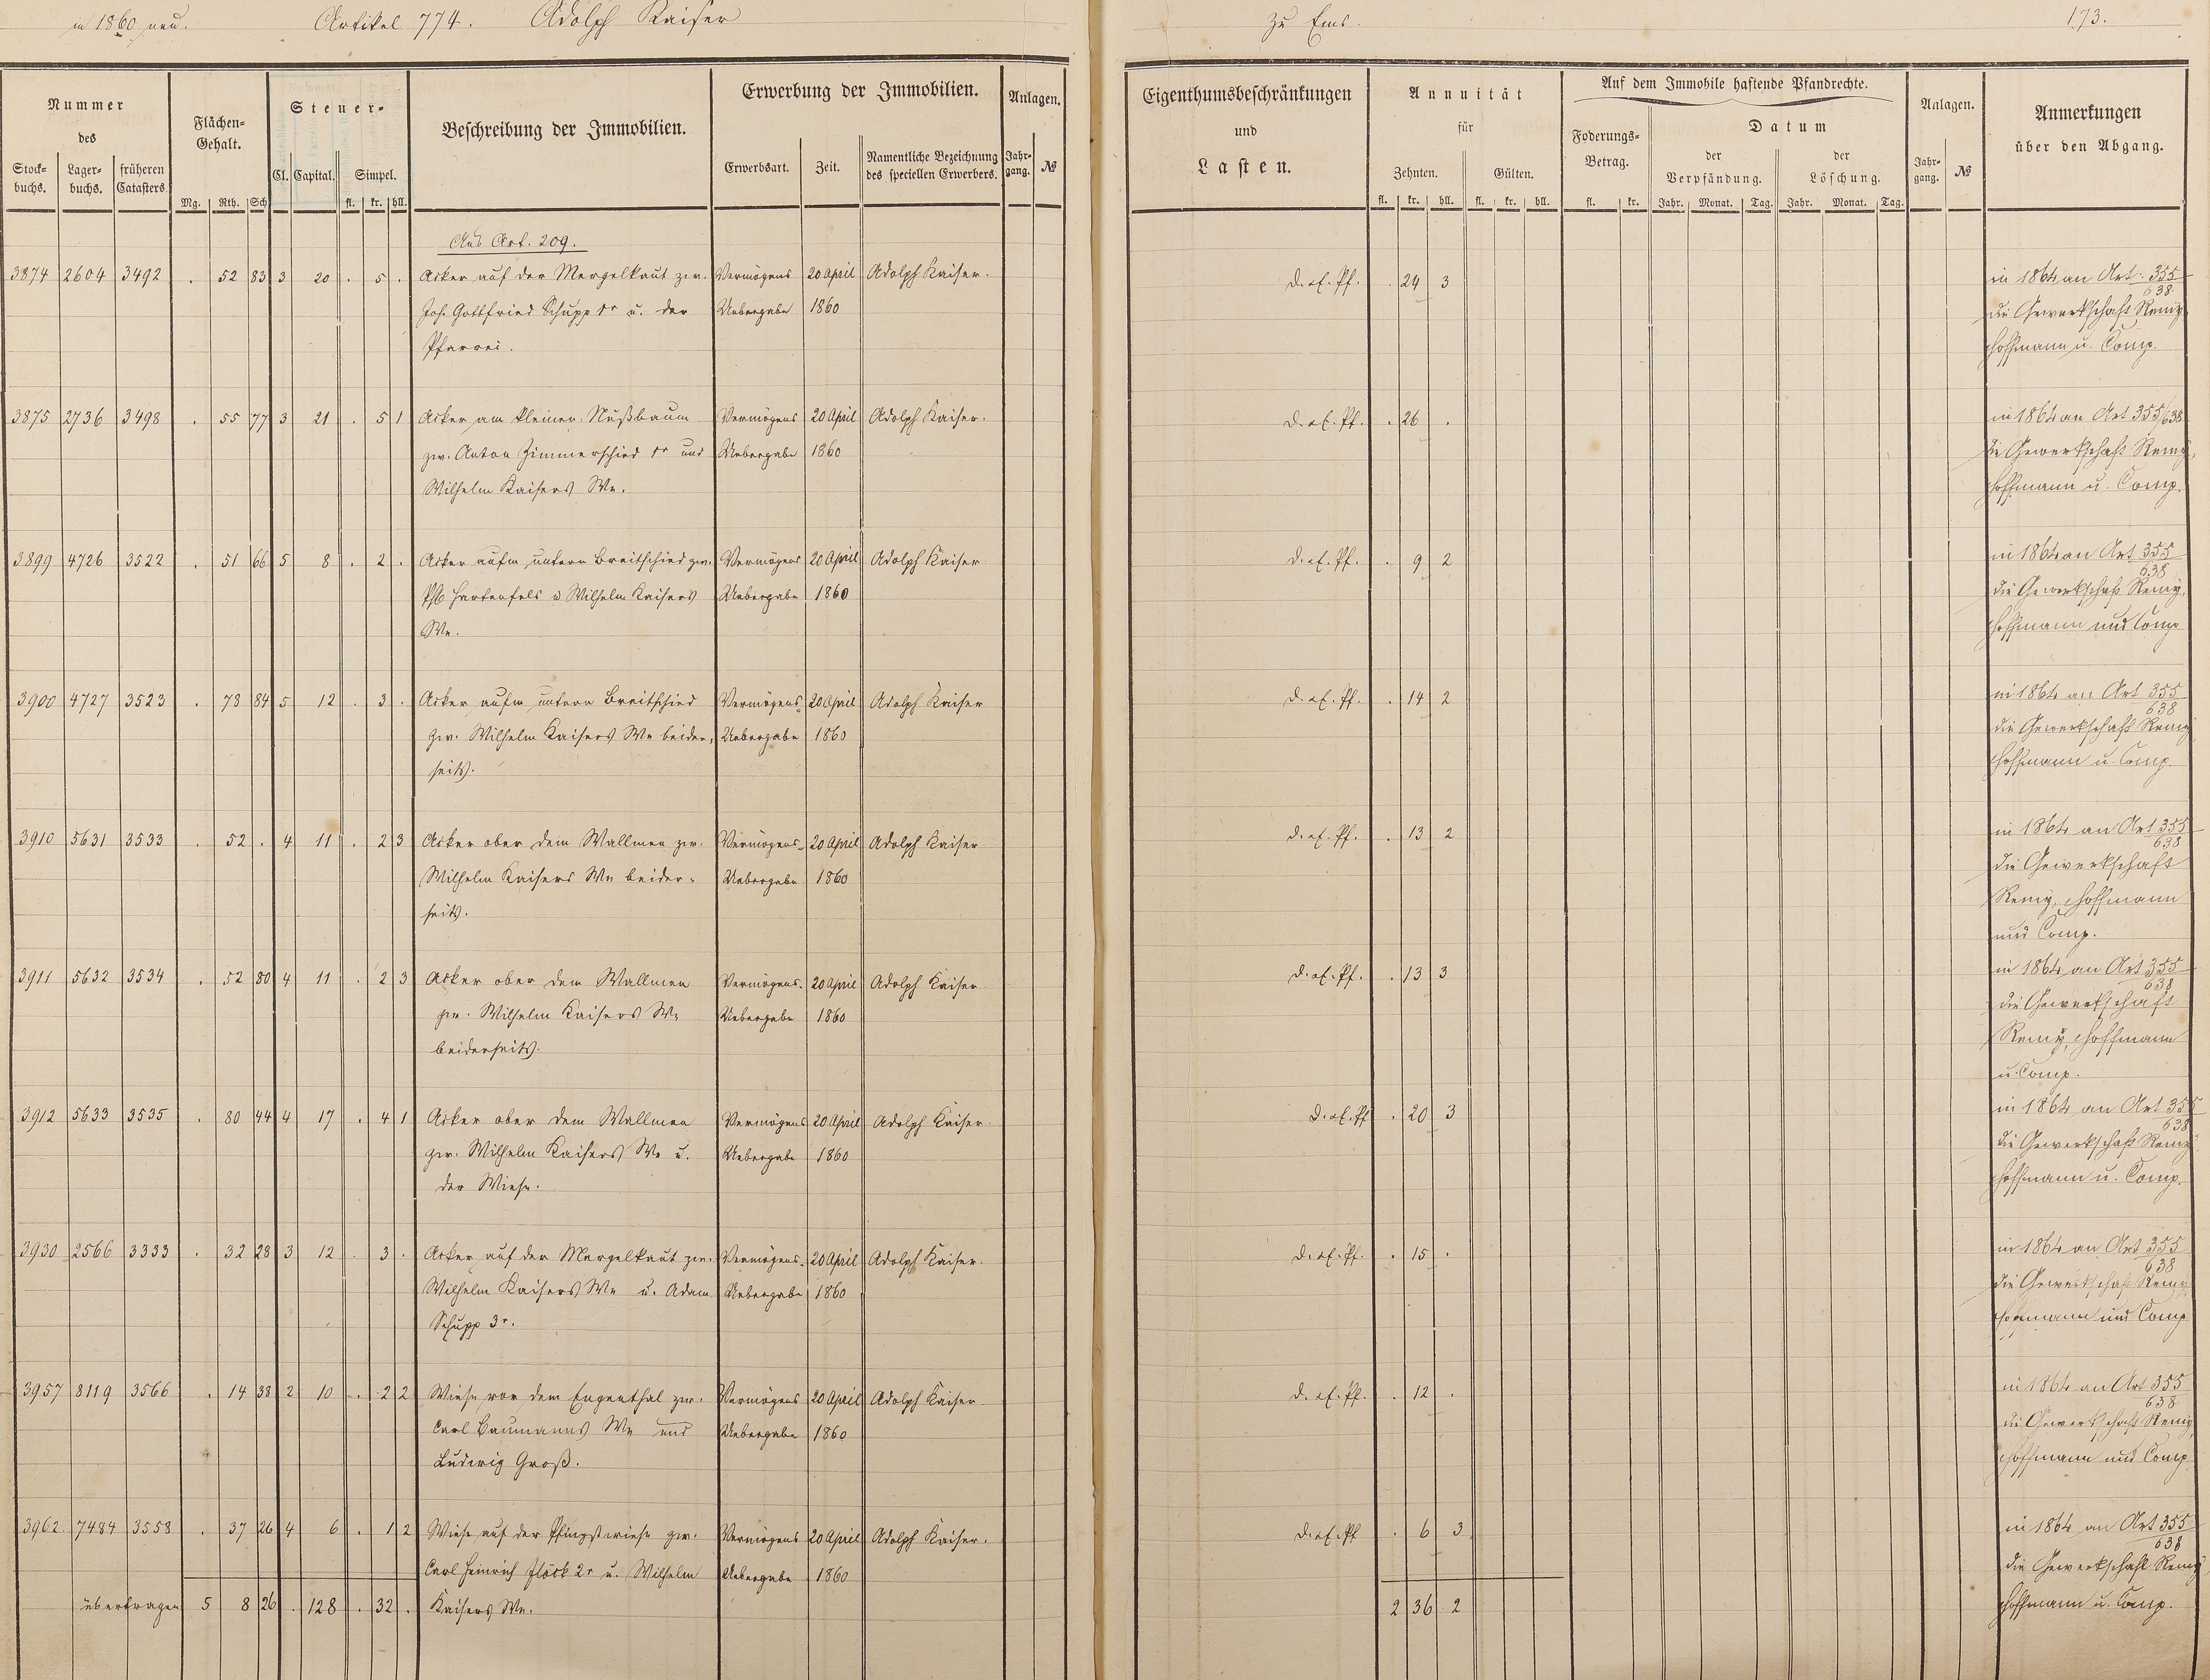 in 1860 neu. Artikel 774. Adolph Kaiser zu Ems. 173.
Nummer des
Stock- buchs. Lager- buchs. früheren Catasters.
Flächen- Gehalt.
Mg. Rth. Sch.
Steuer-
Cl. Capital. Simpel.
fl. kr. hll.
Beschreibung der Immobilien.
Erwerbung der Immobilien.
Erwerbsart. Zeit. Namentliche Bezeichnung des speciellen Erwerbers.
Anlagen.
Jahr- gang. №
Eigenthumsbeschränkungen
und
Lasten.
Annuität
für
Zehnten. Gülten.
fl. kr. hll. fl. kr. hll.
Auf dem Immobile haftende Pfandrechte.
Foderungs- Betrag.
fl. kr.
Datum
der Verpfändung. der Löschung.
Jahr. Monat. Tag. Jahr. Monat. Tag.
Anlagen.
Jahr- gang. №
Anmerkungen
über den Abgang.
Aus Art. 209.
3874 2604 3492 . 52 83 3 20 . 5 . Acker auf der Mergelkaut zw. Vermögens 20 April Adolph Kaiser. d. ef. Pf. . 24 3 in 1864 an Art. 355/638
Joh. Gottfried Schupp u. der Uebergabe 1860 die Gewerkschaft Remy
Pfarrei. Hoffmann u. Comp.
3875 2736 3498 . 55 77 3 21 . 5 1 Acker am kleinen Nußbaum Vermögens 20 April Adolph Kaiser. d. ef. Pf. . 26 . in 1864 an Art 355/638
zw. Anton Zimmerschied und Uebergabe 1860 die Gewerkschaft Remy,
Wilhelm Kaisers We. Hoffmann u. Comp.
3899 4726 3522 . 51 66 5 8 . 2 . Acker aufm untern Breitschied zw. Vermögens 20 April Adolph Kaiser. d. ef. Pf. . 9 2 in 1864 an Art 355/638
Hartenfels u Wilhelm Kaisers Uebergabe 1860 die Gewerkschaft Remy,
We. Hoffmann und Comp
3900 4727 3523 . 78 84 5 12 . 3 . Acker aufm untern Breitschied Vermögens 20 April Adolph Kaiser d. ef. Pf. . 14 2 in 1864 an Art 355/638
zw. Wilhelm Kaisers We beider- Uebergabe 1860 die Gewerkschaft Remy
seits. Hoffmann u. Comp.
3910 5631 3533 . 52 . 4 11 . 2 3 Acker ober dem Wallmen zw. Vermögens- 20 April Adolph Kaiser. d. ef. Pf. . 13 2 in 1864 an Art 355/638
Wilhelm Kaisers We beider- Uebergabe 1860 die Gewerkschaft
seits. Remy, Hoffmann
und Comp.
3911 5632 3534 . 52 80 4 11 . 2 3 Acker ober dem Wallmen Vermögens- 20 April Adolph Kaiser. d. ef. Pf. . 13 3 in 1864 an Art 355/638
zw. Wilhelm Kaisers We Uebergabe 1860 die Gewerkschaft
beiderseits. Remy, Hoffmann
u. Comp.
3912 5633 3535 . 80 44 4 17 . 4 1 Acker ober dem Wallmen Vermögens 20 April Adolph Kaiser. d. ef. Pf . 20 3 in 1864 an Art 355/638
zw. Wilhelm Kaisers We u. Uebergabe 1860 die Gewerkschaft Remy
der Wiese. Hoffmann u. Comp.
3930 2566 3333 . 32 28 3 12 . 3 . Acker auf der Mergelkaut zw. Vermögens- 20 April Adolph Kaiser. d. ef. Pf. . 15 . in 1864 an Art 355/638
Wilhelm Kaisers We u. Adam Uebergabe 1860 die Gewerkschaft Remy,
Schupp 3r. Hoffmann und Comp
3957 8119 3566 . 14 38 2 10 . 2 2 Wiese vor dem Engenthal zw. Vermögens 20 April Adolph Kaiser. d. ef. Pf. . 12 . in 1864 an Art 355/638
Carl Baumanns We und Uebergabe 1860 die Gewerkschaft Remy,
Ludwig Groß. Hoffmann und Comp
3962 7484 3558 . 37 26 4 6 . 1 2 Wiese auf der Pfingstwiese zw. Vermögens 20 April Adolph Kaiser. d. ef. Pf . 6 3 in 1864 an Art 355/638
Carl Heinrich Flöck 2r u. Wilhelm Uebergabe 1860 die Gewerkschaft Remy
übertragen 5 8 26 . 128 . 32 . Kaisers We. 2 36 2 Hoffmann u. Comp.